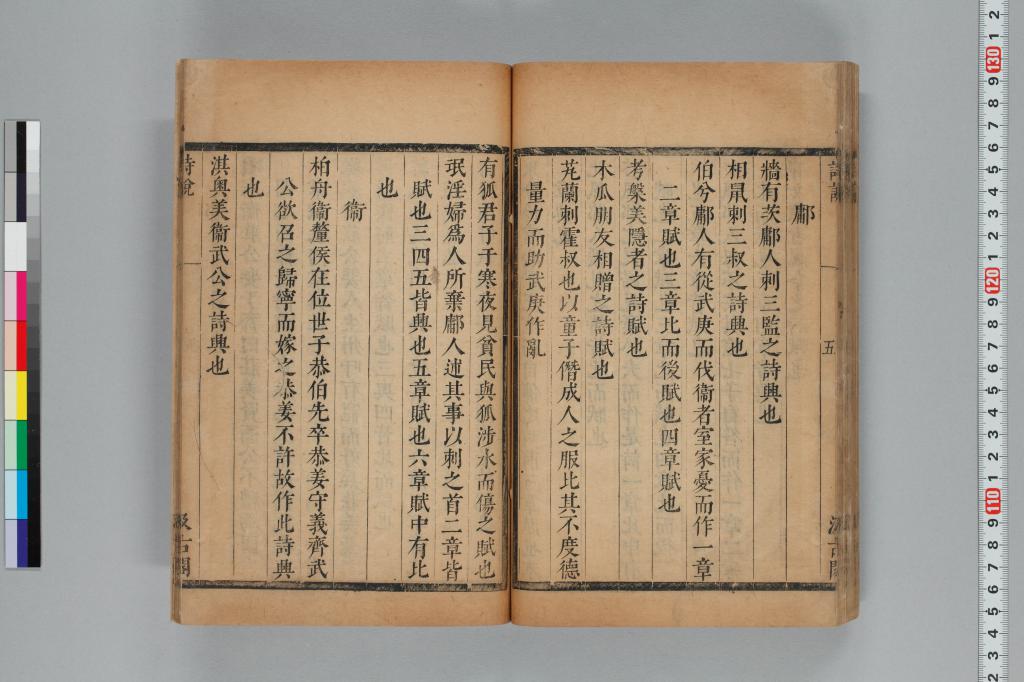 鄘
牆有茨鄘人刺三監之詩興也
相鼠刺三叔之詩興也
伯兮鄘人有從武庚而伐衞者室家憂而作一章
二章賦也三章比而後賦也四章賦也
考槃美隱者之詩賦也
木瓜朋友相贈之詩賦也
芄蘭刺霍叔也以童子僭成人之服比其不度德
量力而助武庚作亂
有狐君子于寒夜見貧民與狐涉水而傷之賦也
珉淫婦爲人所棄鄘人述其事以刺之首二章皆
賦也三四五皆興也五章賦也六章賦中有比
也
衞
柏舟衞釐侯在位世子恭伯先卒恭姜守義齊武
公欲召之歸寧而嫁之恭姜不許故作此詩興
也
淇奧美衞武公之詩興也
詩說
五
汲古閣
12
130
9
8
7
6
5
4
3
2
1
120
9
8
7
6
5
4
3
2
1
110
9
8
7
6
5
4
3
2